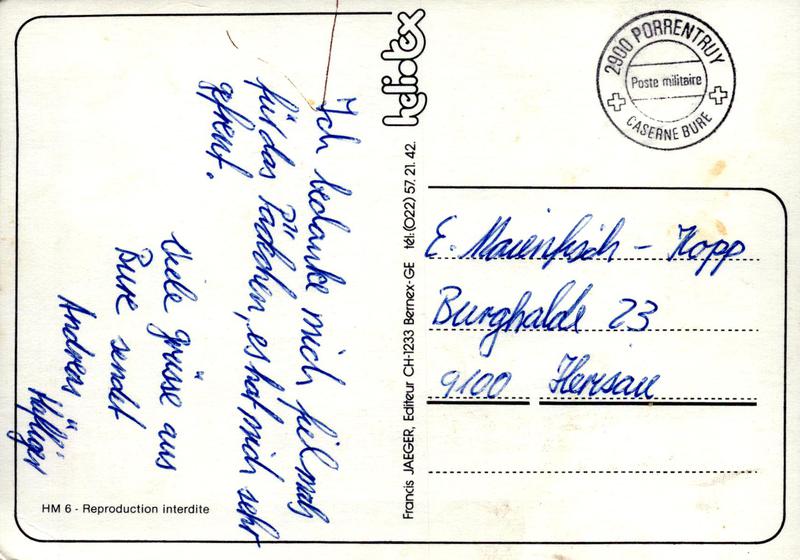 Ich bedanke mich fielmals
für das Päckchen, es hat mich sehr
gefreut.
Viele grüsse aus
Bure sendet
Andreas
Häfliger
heliotex
2900 PORRENTRUY
Poste militaire
CASERNE BURE
E. Maienfisch - Kopp
Burghalde 23
9100 Herisau
Francis JAEGER, Editeur CH-1233 Bernex-GE tél: (022) 57. 21. 42.
HM 6 - Reproduction interdite